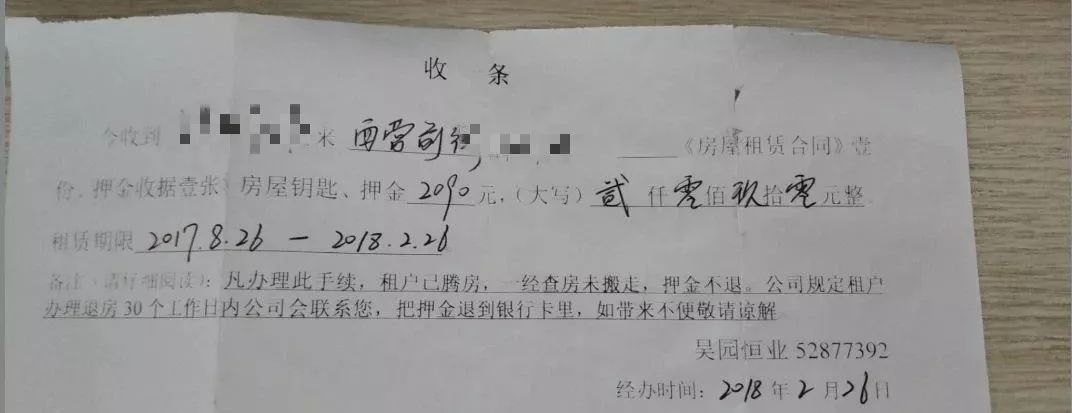 收 条
今收到 来 西营前街, 《房屋租赁合同》壹
份、押金收据壹张、房屋钥匙、押金2090元,（大写）贰仟零佰玖拾零元整
租赁期限2017.8.26 — 2018.2.26
备注（请仔细阅读）：凡办理此手续，租户已腾房，一经查房未搬走，押金不退。公司规定租户
办理退房30个工作日内公司会联系您，把押金退到银行卡里，如带来不便敬请谅解
昊园恒业 52877392
经办时间：2018年2月26日